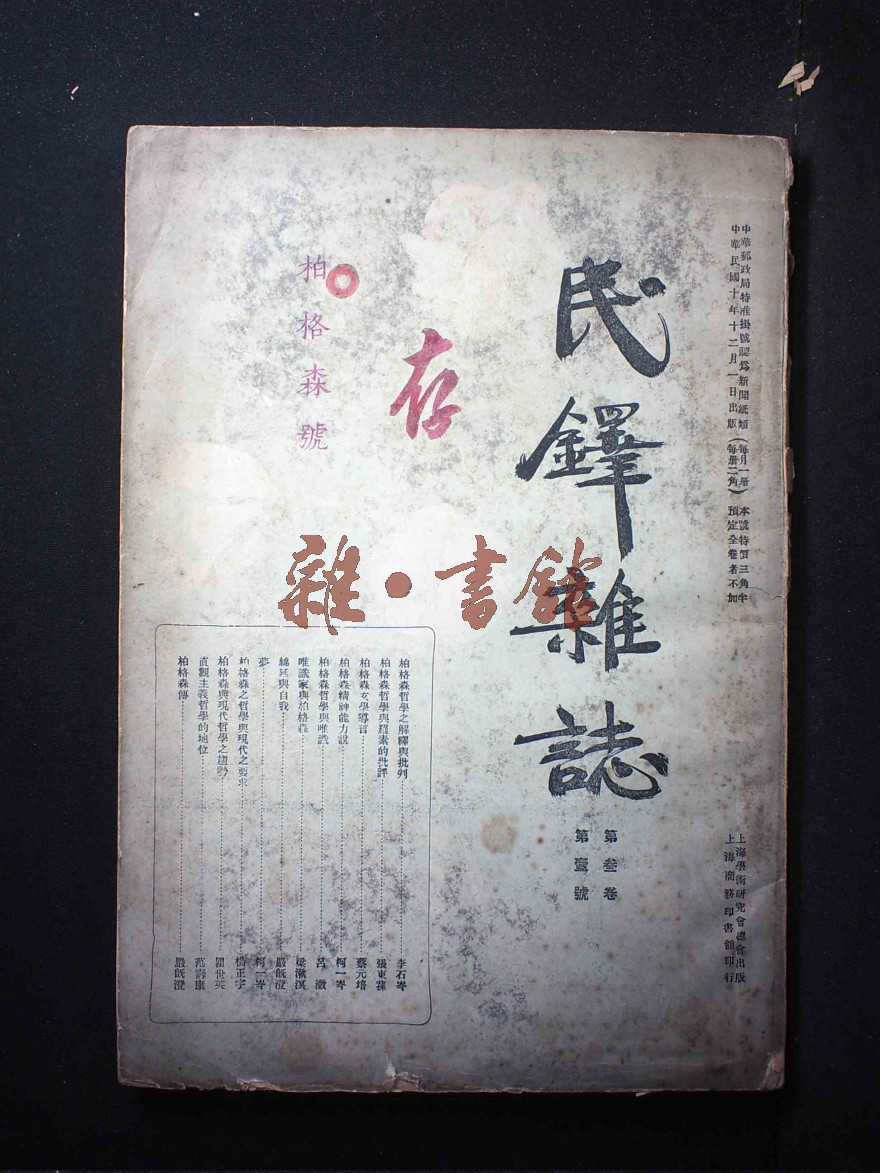 中華郵政局特准掛號認爲新聞紙類（每月一册 本號特價三角半
中華民國十年十二月一日出版（每册二角） 預定全卷者不加
上海學術研究會總會出版
上海商務印書館印行
民鐸雜誌
第叁卷
第壹號
存
柏格森號
雜·書館
柏格森哲學之解釋與批判 李石岑
柏格森哲學與羅素的批評 張東蓀
柏格森玄學導言 蔡元培
柏格森精神能力說 柯一岑
柏格森哲學與唯識 呂澂
唯識家與柏格森 梁漱溟
綿延與自我 嚴旣澄
夢 柯一岑
柏格森之哲學與現代之要求 楊正宇
柏格森與現代哲學之趨勢 瞿世英
直觀主義哲學的地位 范壽康
柏格森傳 嚴旣澄